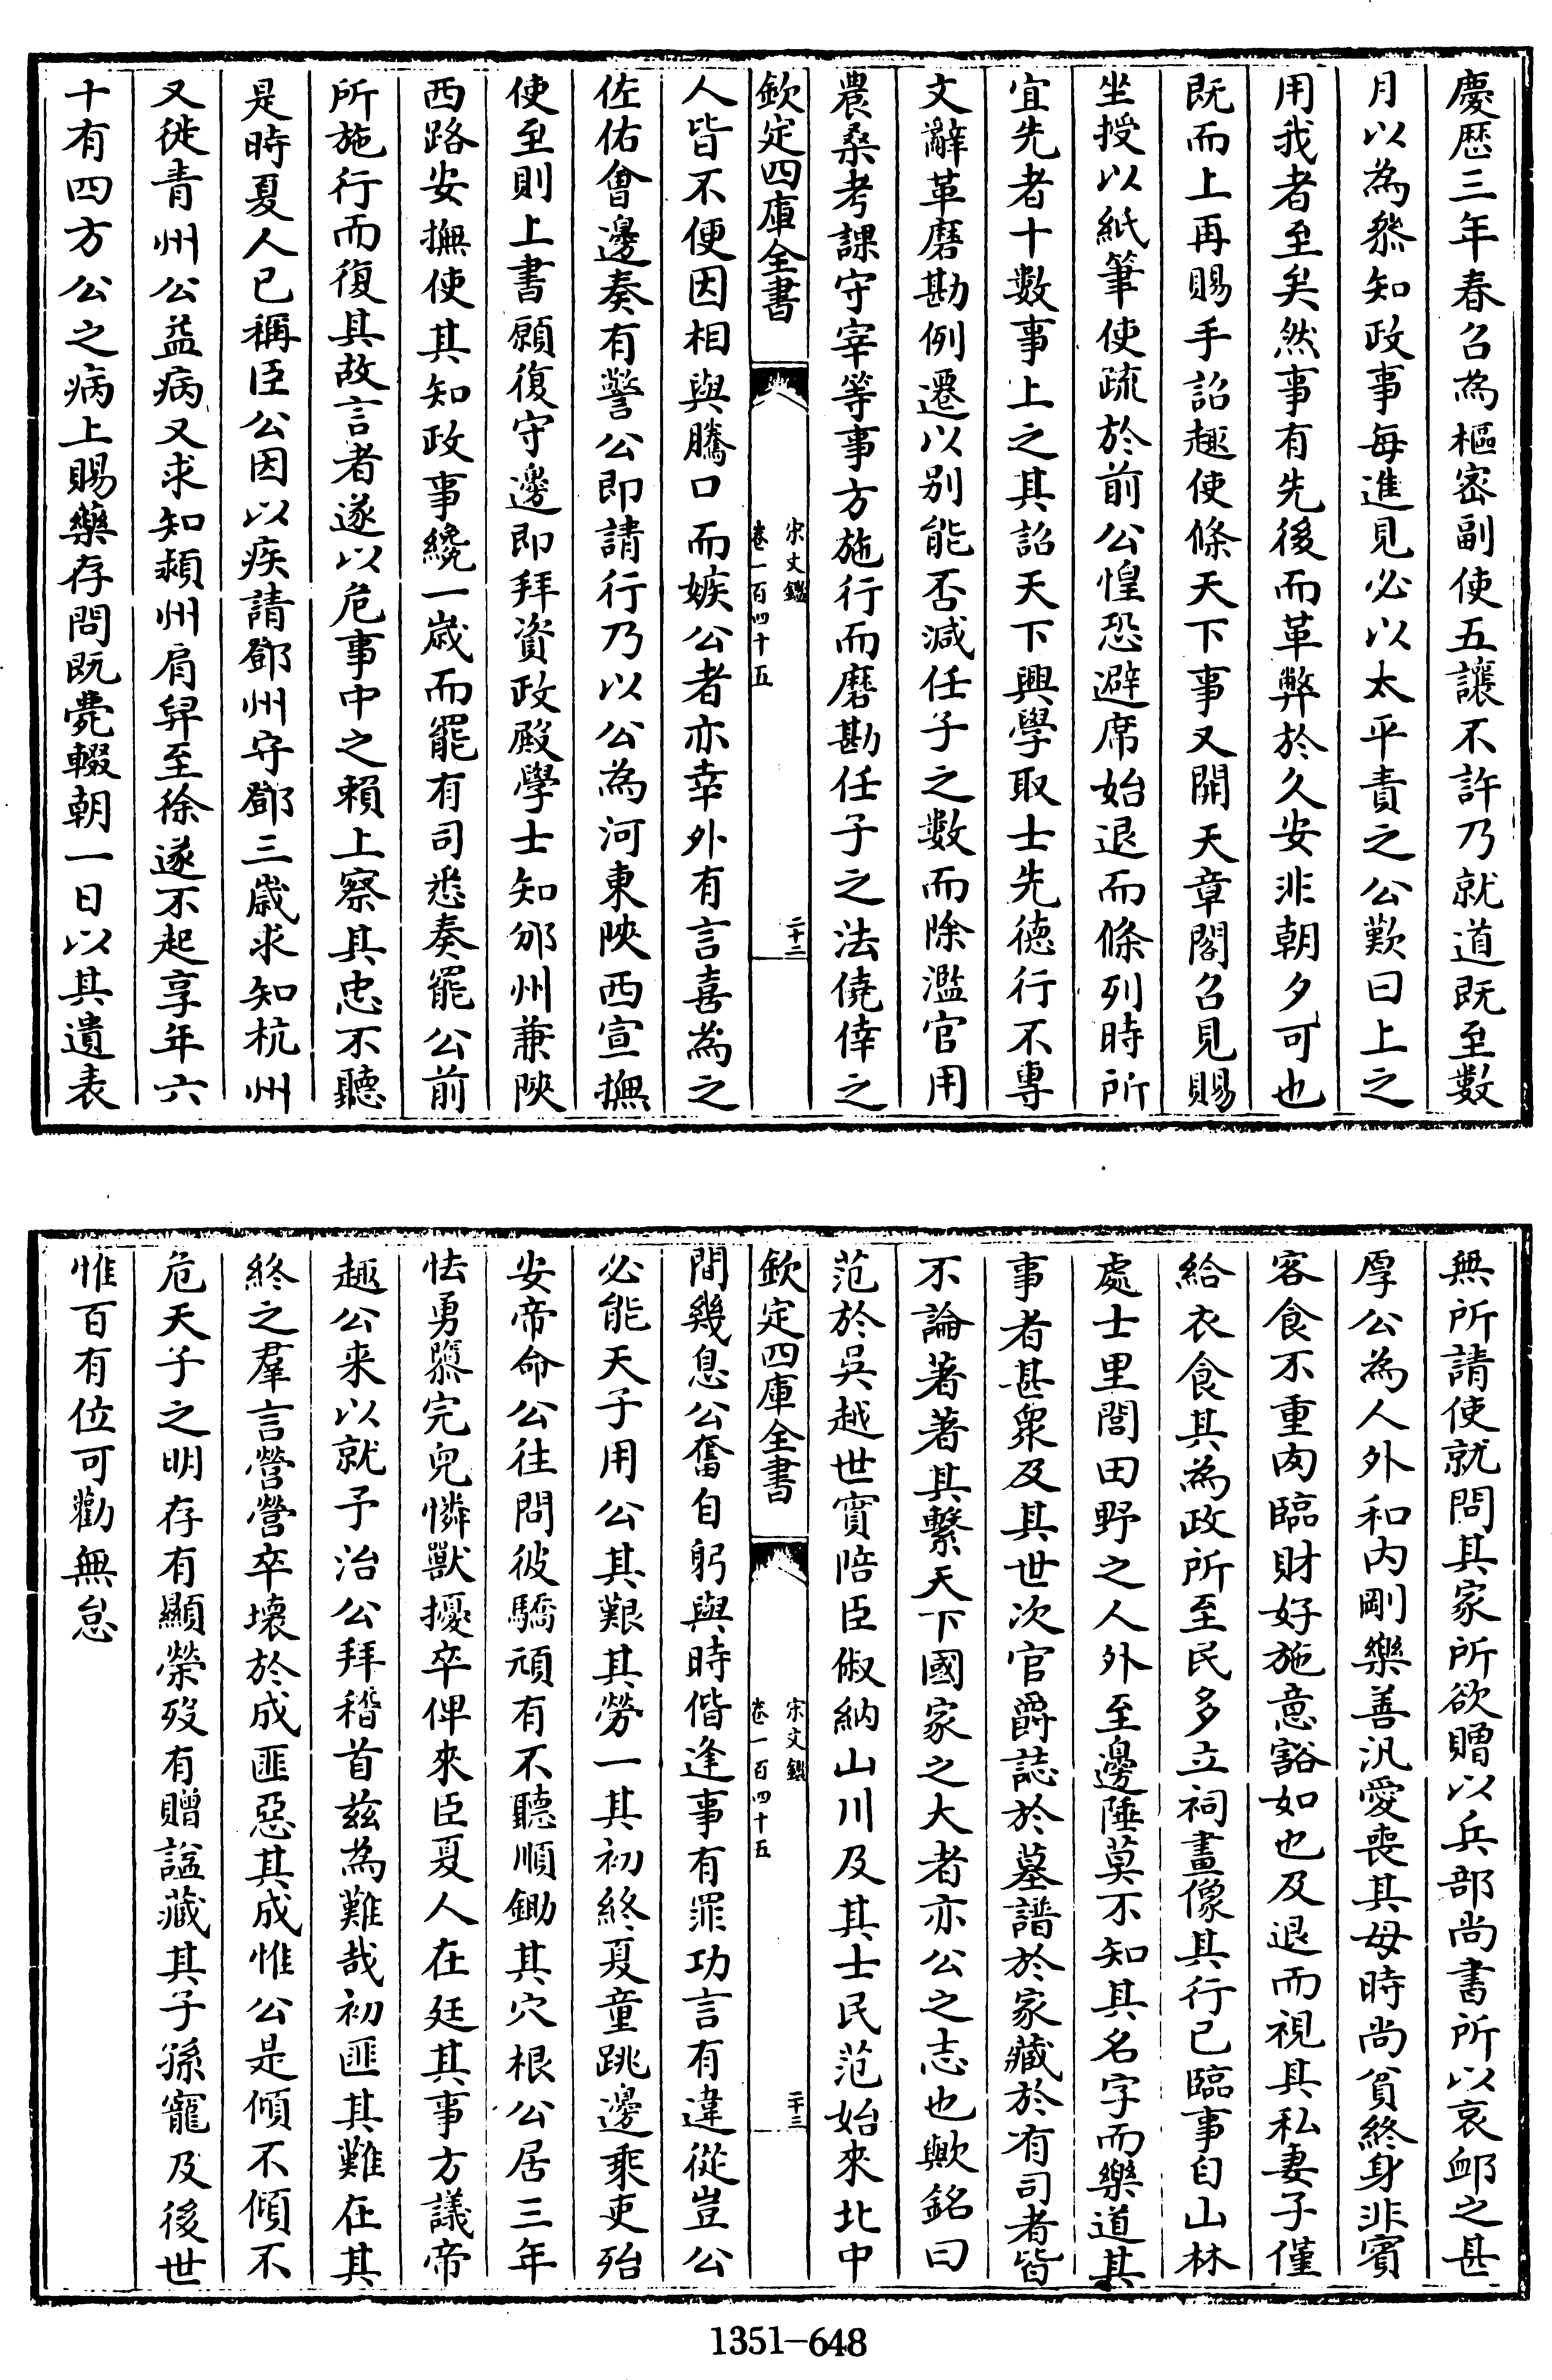 慶歴三年春召為樞密副使五讓不許乃就道既至數
月以為叅知政事每進見必以太平責之公歎曰上之
用我者至矣然事有先後而革弊於久安非朝夕可也
既而上再賜手詔趣使條天下事又開天章閣召見賜
坐授以紙筆使疏於前公惶恐避席始退而條列時所
宜先者十數事上之其詔天下興學取士先徳行不專
文辭革磨勘例遷以别能否減任子之數而除濫官用
農桑考課守宰等事方施行而磨勘任子之法僥倖之
欽定四庫全書
宋文鑑
卷一百四十五
二十二
人皆不便因相與騰口而嫉公者亦幸外有言喜為之
佐佑會邊奏有警公即請行乃以公為河東陜西宣撫
使至則上書願復守邊即拜資政殿學士知邠州兼陜
西路安撫使其知政事纔一歳而罷有司悉奏罷公前
所施行而復其故言者遂以危事中之賴上察其忠不聽
是時夏人已稱臣公因以疾請鄧州守鄧三嵗求知杭州
又徙青州公益病又求知潁州肩舁至徐遂不起享年六
十有四方公之病上賜藥存問既薨輟朝一日以其遺表
無所請使就問其家所欲贈以兵部尚書所以哀卹之甚
厚公為人外和内剛樂善汎愛喪其母時尚貧終身非賓
客食不重肉臨財好施意豁如也及退而視其私妻子僅
給衣食其為政所至民多立祠畫像其行已臨事自山林
處士里閭田野之人外至邊陲莫不知其名字而樂道其
事者甚衆及其世次官爵誌於墓譜於家藏於有司者皆
不論著著其繫天下國家之大者亦公之志也歟銘曰
范於吳越世實陪臣俶納山川及其士民范始來北中
欽定四庫全書
宋文鑑
卷一百四十五
二十三
間幾息公奮自躬與時偕逢事有罪功言有違從豈公
必能天子用公其艱其勞一其初終夏童跳邊乘吏殆
安帝命公往問彼驕頑有不聽順鋤其穴根公居三年
怯勇隳完兒憐獸擾卒俾來臣夏人在廷其事方議帝
趣公来以就予治公拜稽首兹為難哉初匪其難在其
終之羣言營營卒壞於成匪惡其成惟公是傾不傾不
危天子之明存有顯榮歿有贈諡藏其子孫寵及後世
惟百有位可勸無怠
1351-648